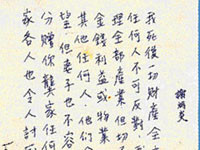 我死後一切財產全
任何人不可反對
理全部產業但切
金錢利益或物業
其他任何人他們
望但妻子也不容
分贈你龔家任何
家各人也令人討